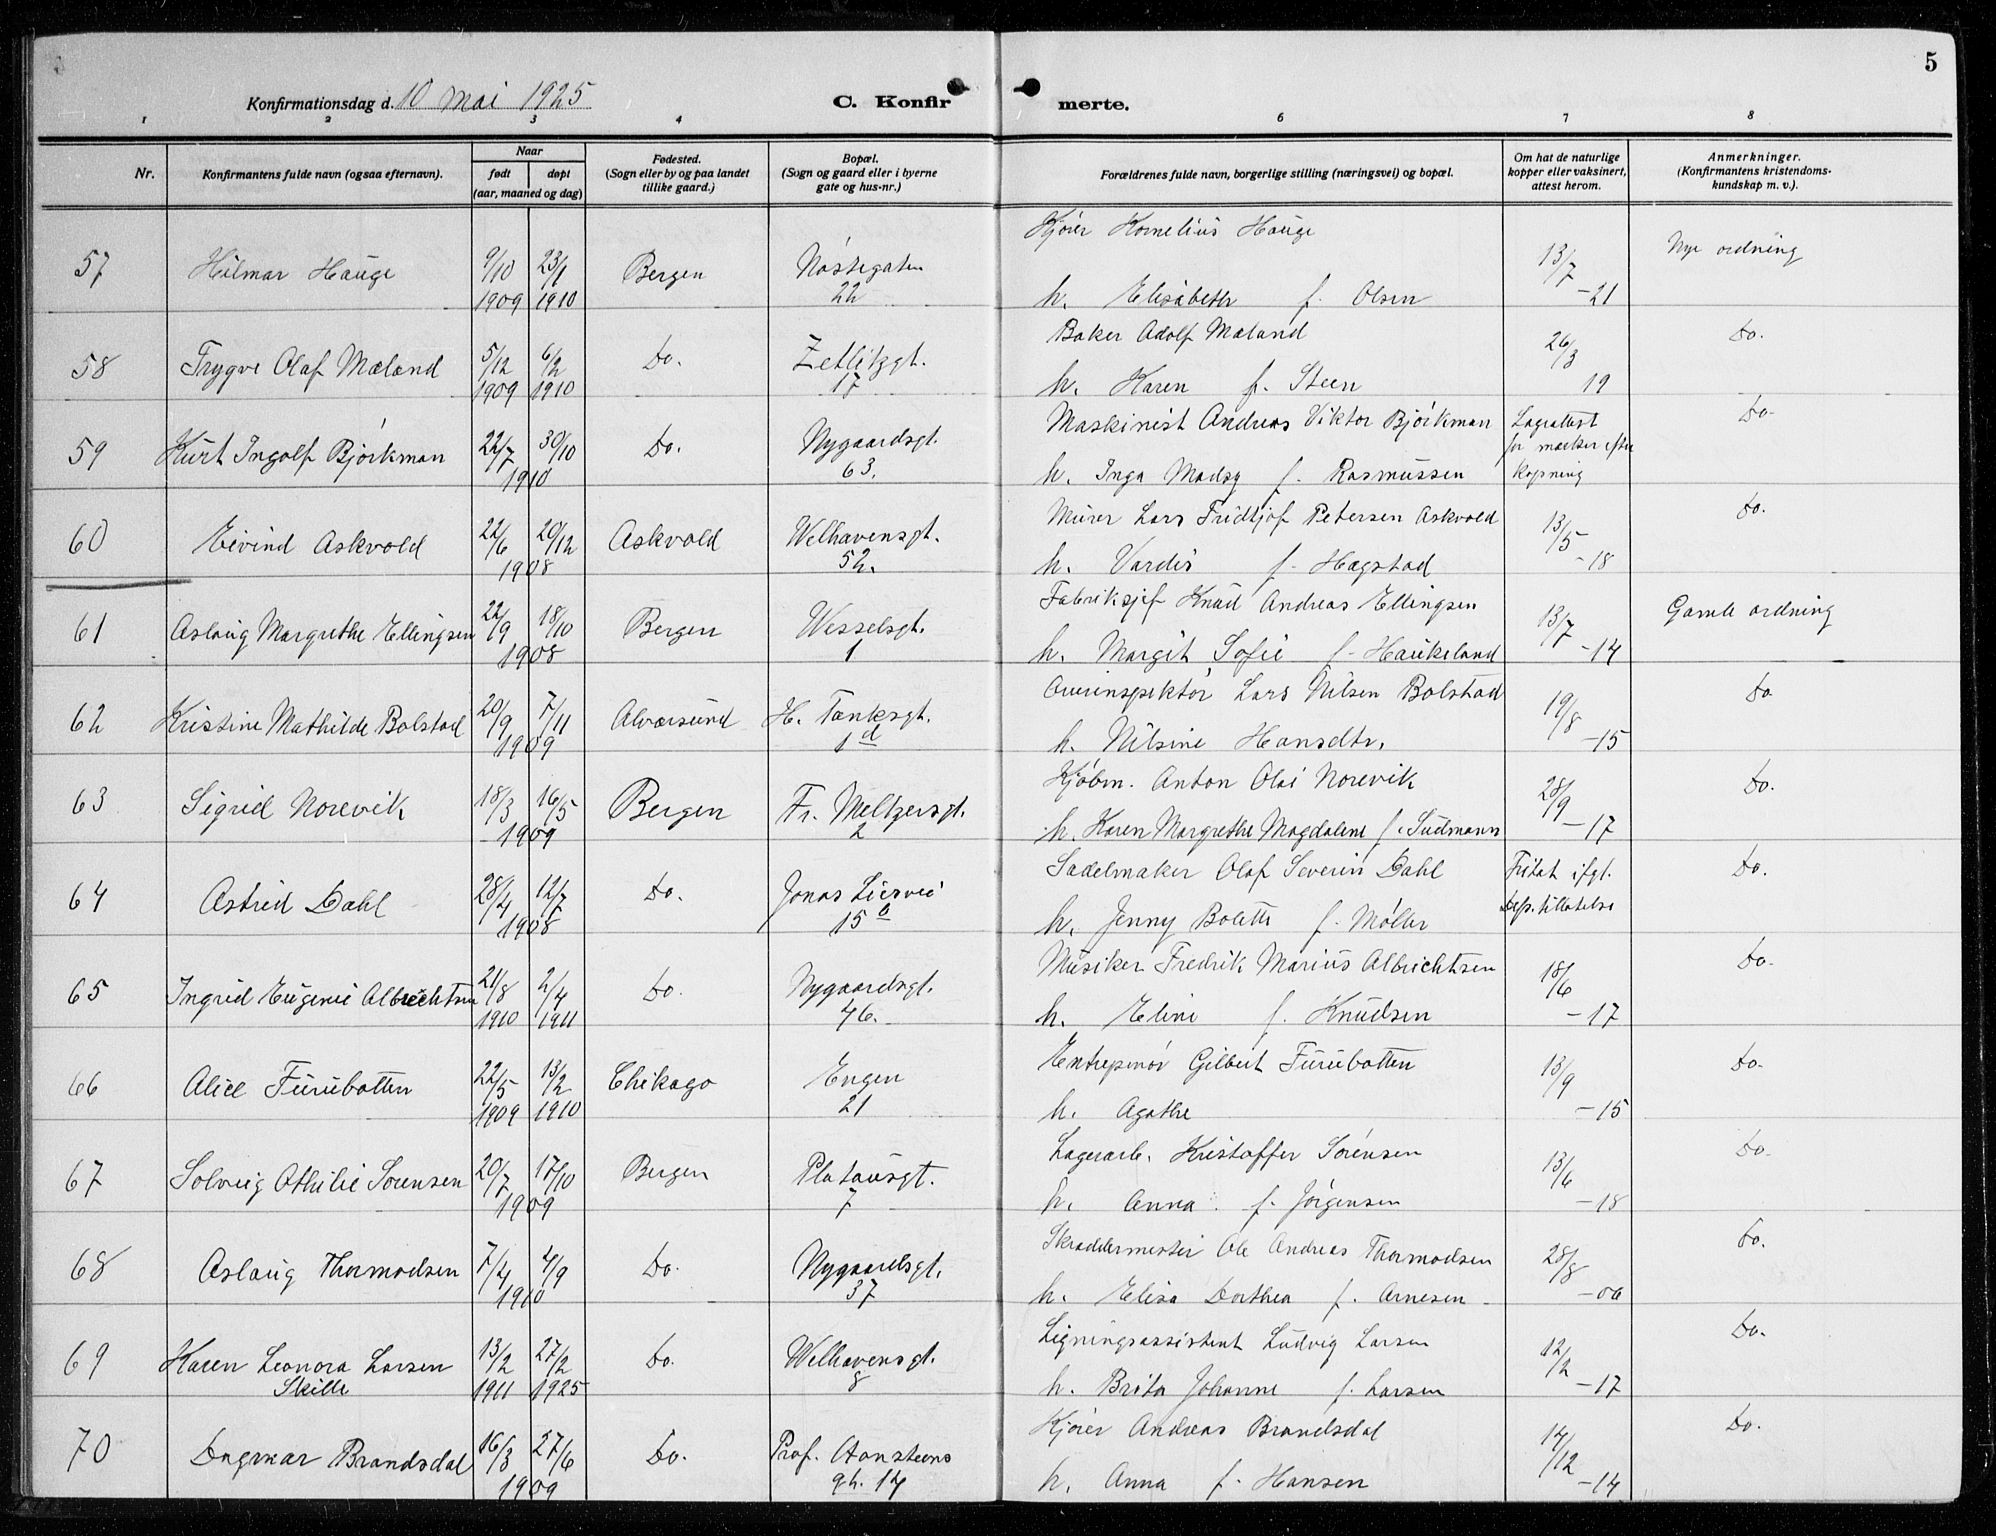 5
Konfirmationsdag d. 10 mai 1925
C. Konfirmerte.
1 2 3 4 6 7 8
Nr. Konfirmantens fulde navn (ogsaa efternavn). Naar født døpt (aar, maaned og dag) Fødested. (Sogn eller by og paa landet tillike gaard.) Bopæl. (Sogn og gaard eller i byerne gate og hus-nr.) Forældrenes fulde navn, borgerlige stilling (næringsvei) og bopæl. Om hat de naturlige kopper eller vaksinert, attest herom. Anmerkninger. (Konfirmantens kristendomskundskap m. v.).
57 Hilmar Hauge 9/10 1909 23/1 1910 Bergen Nøstegaten 22 Kjører Kornelius Hauge 13/7 -21 Nye ordning
h. Elisabeth f. Olsen
58 Trygve Olaf Mæland 5/12 1909 6/2 1910 Do. Zetlitzgt. 17 Baker Adolf Mæland 26/3 19 Do.
h. Karen f. Steen
59 Kurt Ingolf Bjørkman 22/7 30/10 1910 Do. Nygaardsgt. 63. Maskinist Andreas Viktor Bjørkman Lægattest for mærker efter kopning Do.
h. Inga Madsy f. Rasmussen
60 Eivind Askvold 22/6 20/12 1908 Askvold Welhavensgt. 52. Murer Lars Fridtjof Petersen Askvold 13/5 -18 Do.
h. Vardis f. Hagstad
61 Aslaug Margrethe Ellingsen 22/9 18/10 1908 Bergen Wesselsgt. 1 Fabriksjef Knud Andreas Ellingsen 13/7 -14 Gamle ordning
h. Margit Sofie f. Haukeland
62 Kristine Mathilde Bolstad 20/9 7/11 1909 Alversund H. Tanksgt. 1d Lars Nilsen Bolstad 19/8 -15 Do
h. Nilsine Hansdtr.
63 Sigrid Norevik 18/3 16/5 1909 Bergen Fr. Meltzersgt. 2 Kjøbm. Anton Olai Norevik 28/9 -17 Do.
h. Karen Margrethe Magdalene f. Sudmann
64 Astrid Dahl 28/4 12/7 1908 Do. Jonas Liesvei 15b Sadelmaker Olaf Severin Dahl Fritat ifgt. Dep. tillatelse Do.
h. Jenny Bolette f. Møller
65 Ingrid Eugenie Albrechtsen 21/8 1910 2/4 1911 Do. Nygaardsgt. 46. Musiker Fredrik Marius Albrichtsen 18/6 -17 Do.
h. Eline f. Knudsen
66 Alice Furubotten 22/5 1909 13/2 1910 Chikago Engen 21 Entreprenør Gilbert Furubotten 13/9 -15 Do.
h. Agathe
67 Solveig Othilie Sørensen 20/7 17/10 1909 Bergen Platousgt. 7 Lagerarb. Kristoffer Sørensen 13/6 -18 Do.
h. Anna f. Jørgensen
68 Aslaug Thormodsen 7/4 4/9 1910 Do. Nygaardsgt. 37 Skræddermester Ole Andreas Thormodsen 28/8 Do.
h. Elisa Dorthea f. Arnesen
69 Karen Leonora Larsen Skille 13/2 1911 27/2 1925 Do. Welhavensgt. 8 Ligningsassistent Ludvig Larsen 12/2 -17 Do.
h. Brita Johanne f. Larsen
70 Dagmar Brandsdal 16/3 27/6 1909 Do. Prof. Hansteens gt. 14 Kjører Andreas Brandsdal 14/12 -14 Do.
h. Anna f. Hansen